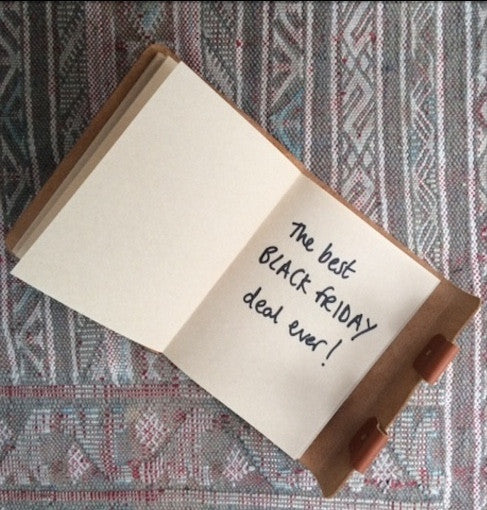 The best
BLACK FRIDAY
deal ever!